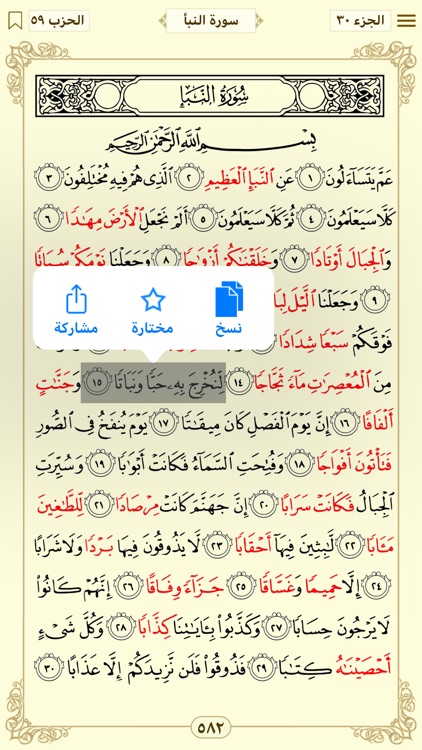 الجزء ٣٠
سورة النبأ
الحزب ٥٩
سُورَةُ النَّبَإِ
بِسْمِ اللَّهِ الرَّحْمَٰنِ الرَّحِيمِ
عَمَّ يَتَسَآءَلُونَ ١ عَنِ النَّبَإِ الْعَظِيمِ ٢ الَّذِى هُمْ فِيهِ مُخْتَلِفُونَ ٣
كَلَّا سَيَعْلَمُونَ ٤ ثُمَّ كَلَّا سَيَعْلَمُونَ ٥ أَلَمْ نَجْعَلِ الْأَرْضَ مِهَٰدًا ٦
وَالْجِبَالَ أَوْتَادًا ٧ وَخَلَقْنَٰكُمْ أَزْوَٰجًا ٨ وَجَعَلْنَا نَوْمَكُمْ سُبَاتًا
٩ وَجَعَلْنَا الَّيْلَ
نسخ
مختارة
مشاركة
فَوْقَكُمْ سَبْعًا شِدَادًا
مِنَ الْمُعْصِرَٰتِ مَآءً ثَجَّاجًا ١٤ لِّنُخْرِجَ بِهِۦ حَبًّا وَنَبَاتًا ١٥ وَجَنَّٰتٍ
أَلْفَافًا ١٦ إِنَّ يَوْمَ الْفَصْلِ كَانَ مِيقَٰتًا ١٧ يَوْمَ يُنفَخُ فِى الصُّورِ
فَتَأْتُونَ أَفْوَاجًا ١٨ وَفُتِحَتِ السَّمَآءُ فَكَانَتْ أَبْوَٰبًا ١٩ وَسُيِّرَتِ
الْجِبَالُ فَكَانَتْ سَرَابًا ٢٠ إِنَّ جَهَنَّمَ كَانَتْ مِرْصَادًا ٢١ لِّلطَّٰغِينَ
مَـَٔابًا ٢٢ لَّٰبِثِينَ فِيهَآ أَحْقَابًا ٢٣ لَّا يَذُوقُونَ فِيهَا بَرْدًا وَلَا شَرَابًا
٢٤ إِلَّا حَمِيمًا وَغَسَّاقًا ٢٥ جَزَآءً وِفَاقًا ٢٦ إِنَّهُمْ كَانُوا۟
لَا يَرْجُونَ حِسَابًا ٢٧ وَكَذَّبُوا۟ بِـَٔايَٰتِنَا كِذَّابًا ٢٨ وَكُلَّ شَىْءٍ
أَحْصَيْنَٰهُ كِتَٰبًا ٢٩ فَذُوقُوا۟ فَلَن نَّزِيدَكُمْ إِلَّا عَذَابًا ٣٠
٥٨٢